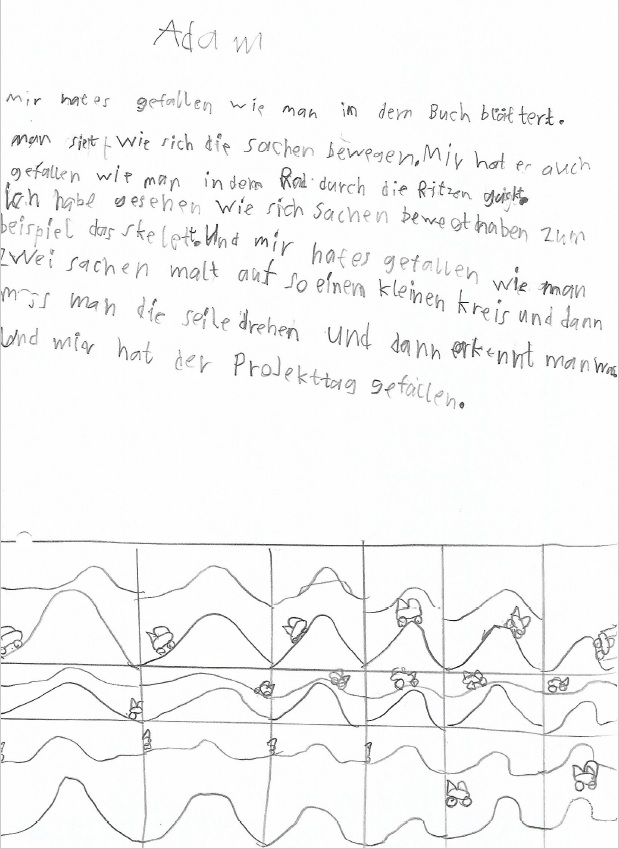 Adam
mir hat es gefallen wie man in dem Buch blättert.
man sieht wie sich die sachen bewegen. Mir hat er auch
gefallen wie man in dem Rad durch die Ritzen guckt.
ich habe gesehen wie sich Sachen bewegt haben zum
beispiel das skelett. Und mir hat es gefallen wie man
zwei sachen malt auf so einem kleinen kreis und dann
muss man die seile drehen und dann erkennt man was.
Und mir hat der Projekttag gefallen.